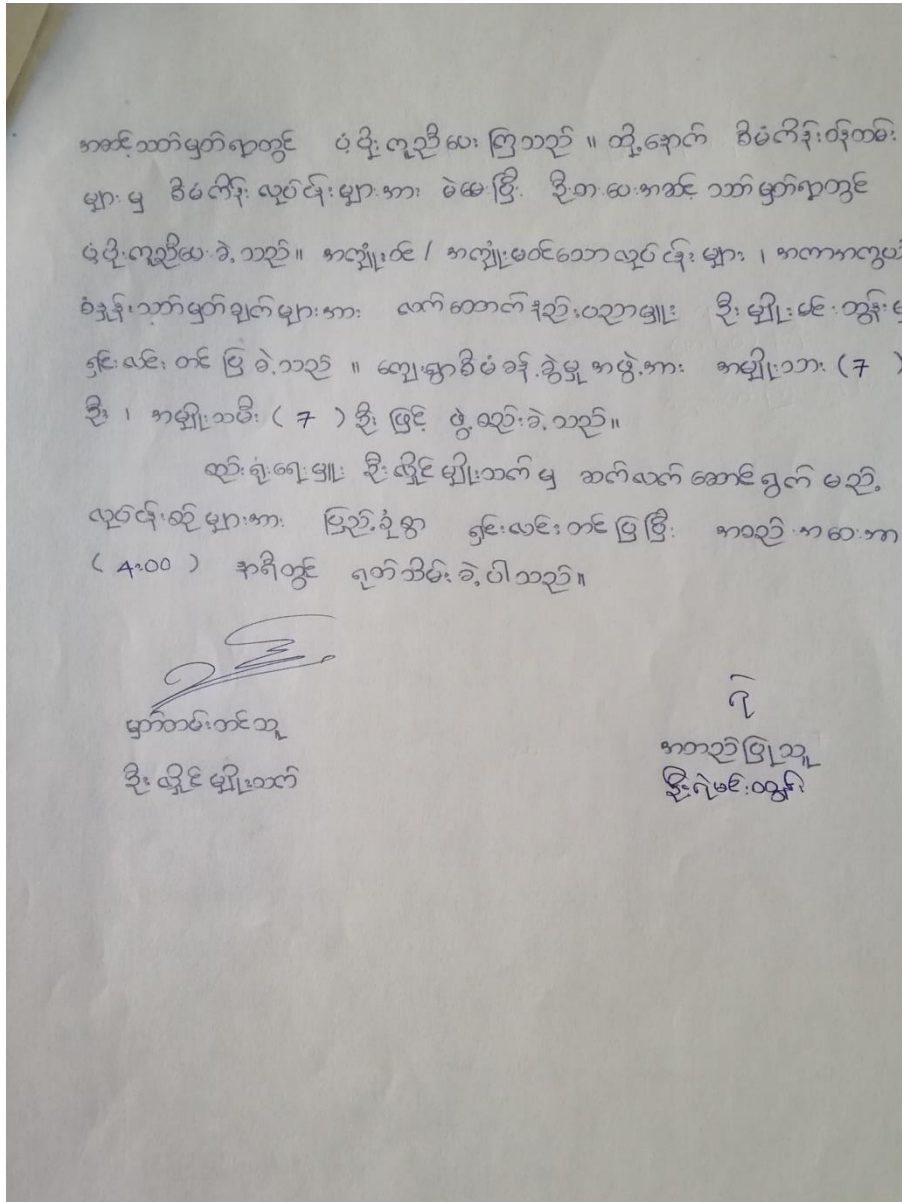 အဆင့်သတ်မှတ်ရာတွင် ပံ့ပိုးကူညီပေးကြသည်။ ထို့နောက် စီမံကိန်းဝန်ထမ်း
များမှ စီမံကိန်းလုပ်ငန်းများအား မဲပေးပြီး ဦးစားပေးအဆင့် သတ်မှတ်ရာတွင်
ပံ့ပိုးကူညီပေးခဲ့သည်။ အကျုံးဝင် / အကျုံးမဝင်သောလုပ်ငန်းများ ၊ အကာအကွယ်
စံနှုန်းသတ်မှတ်ချက်များအား လက်ထောက်နည်းပညာမှူး ဦးမျိုးမင်းထွန်းမှ
ရှင်းလင်းတင်ပြခဲ့သည်။ ကျေးရွာစီမံခန့်ခွဲမှုအဖွဲ့အား အမျိုးသား ( 7 )
ဦး ၊ အမျိုးသမီး ( 7 ) ဦး ဖြင့် ဖွဲ့စည်းခဲ့သည်။
စည်းရုံးရေးမှူး ဦးလှိုင်မျိုးသက်မှ ဆက်လက်ဆောင်ရွက်မည့်
လုပ်ငန်းစဉ်များအား ပြည့်စုံစွာ ရှင်းလင်းတင်ပြပြီး အစည်းအဝေးအား
( 4:00 ) နာရီတွင် ရုတ်သိမ်းခဲ့ပါသည်။
မှတ်တမ်းတင်သူ
ဦးလှိုင်မျိုးသက်
ရဲ
အတည်ပြုသူ
ဦးရဲမင်းထွန်း